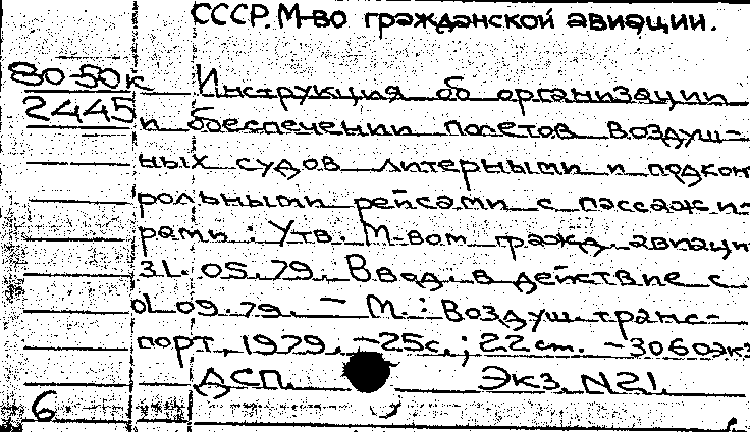 СССР. М-во гражданской авиации.
80-50к Инструкция об организации
2445 и обеспечении полетов воздуш-
ных судов литерными и подкон
рольными рейсами с пассажи-
рами : Утв. М-вом гражд. авиаци
31.05.79. Ввод. в действие с
01.09.79. – М. : Воздуш. транс-
порт, 1979. – 25с. ; 22 см. – 3060экз
ДСП. Экз. N21.
6